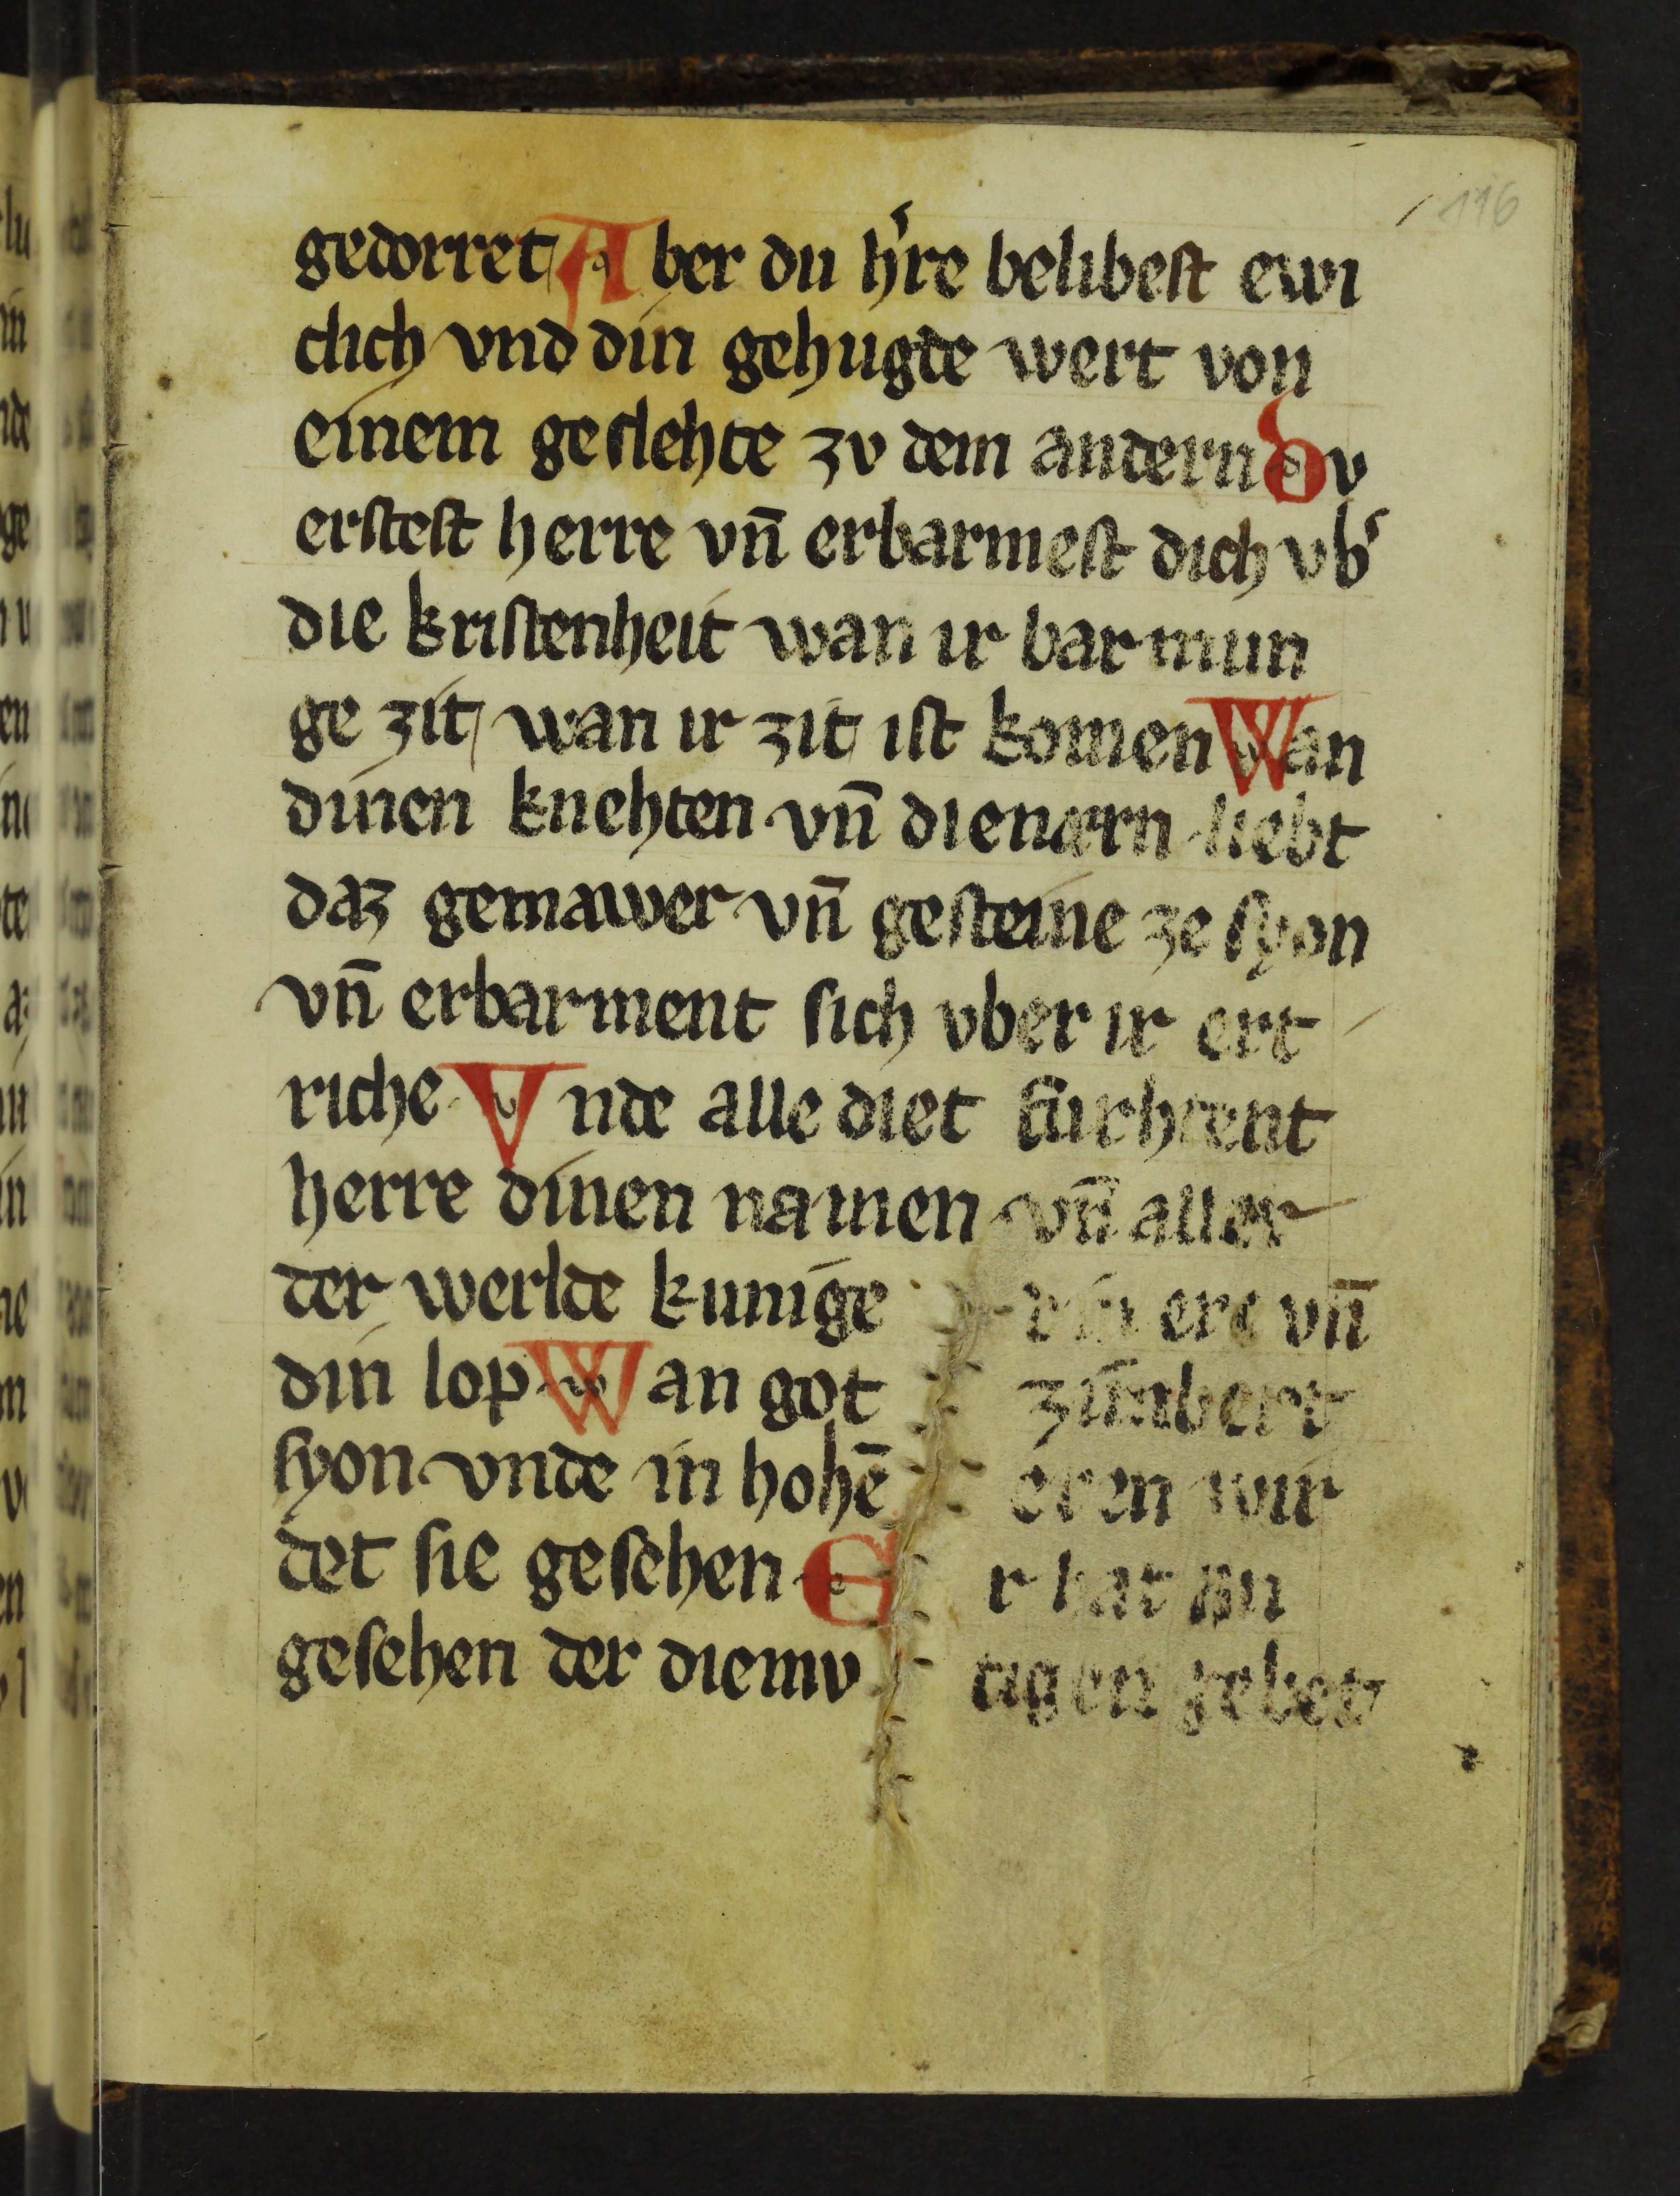 116
gedorret Aber du h͛re belibest ewi
clich vnd din gehugde wert von
einem geslehte zv dem andern Dv
erstest herre vn̄ erbarmest dich vb͛
die kristenheit wan ir barmun
ge zit wan ir zit ist komen Wan
dinen knehten vn̄ dienarn liebt
daz gemawer vn̄ gesteine ze syon
vn̄ erbarment sich vber ir ert
riche Vnde alle diet furhtent
herre dinen namen vn̄ aller
der werlde kunige din ere vn̄
din lop Wan got zimbert
syon vnde in hohē eren wir
det sie gesehen Er hat an
gesehen der diemv tigen gebet